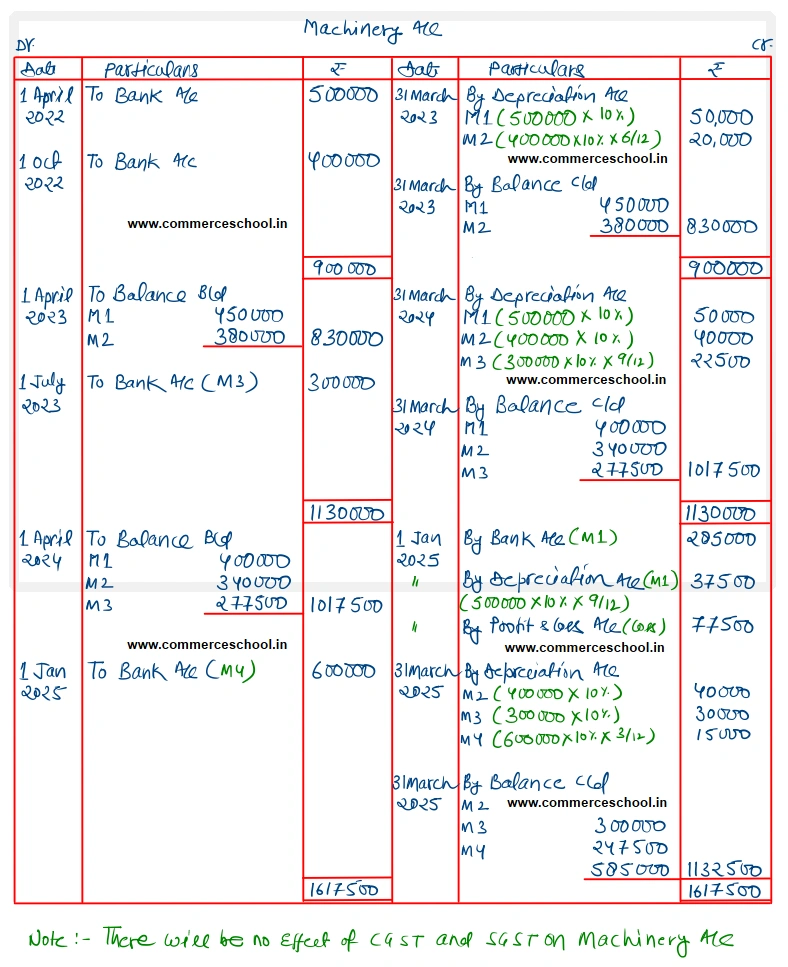 Machinery A/c
Dr. Cr.
Date Particulars ₹ Date Particulars ₹
1 April To Bank A/c 500000 31 March By Depreciation A/c
2022 2023 M1 (500000 x 10%) 50,000
M2 (400000 x10% x 6/12) 20,000
1 Oct To Bank A/c 400000 www.commerceschool.in
2022 31 March By Balance c/d
2023 M1 450000
www.commerceschool.in M2 380000 830000
900000 900000
1 April To Balance B/d 31 March By Depreciation A/c
2023 M1 450000 2024 M1 (500000 x 10%) 50000
M2 380000 830000 M2 (400000 x 10%) 40000
M3 (300000 x10% x 9/12) 22500
1 July To Bank A/c (M3) 300000 www.commerceschool.in
2023 31 March By Balance c/d
2024 M1 400000
M2 340000
M3 277500 1017500
1130000 1130000
1 April To Balance B/d 1 Jan By Bank A/c (M1) 285000
2024 M1 400000 2025
M2 340000 " By Depreciation A/c (M1) 37500
M3 277500 1017500 (500000 x 10% x 9/12)
" By Profit & Loss A/c (Loss) 77500
www.commerceschool.in www.commerceschool.in
1 Jan To Bank A/c (M4) 600000 31 March By Depreciation A/c
2025 2025 M2 (400000 x 10%) 40000
M3 (300000 x 10%) 30000
M4 (600000 x 10% x 3/12) 15000
31 March By Balance c/d
2025 M2 www.commerceschool.in
M3 300000
M4 247500
585000 1132500
1617500 1617500
Note :- There will be no Effect of CGST and SGST on Machinery A/c